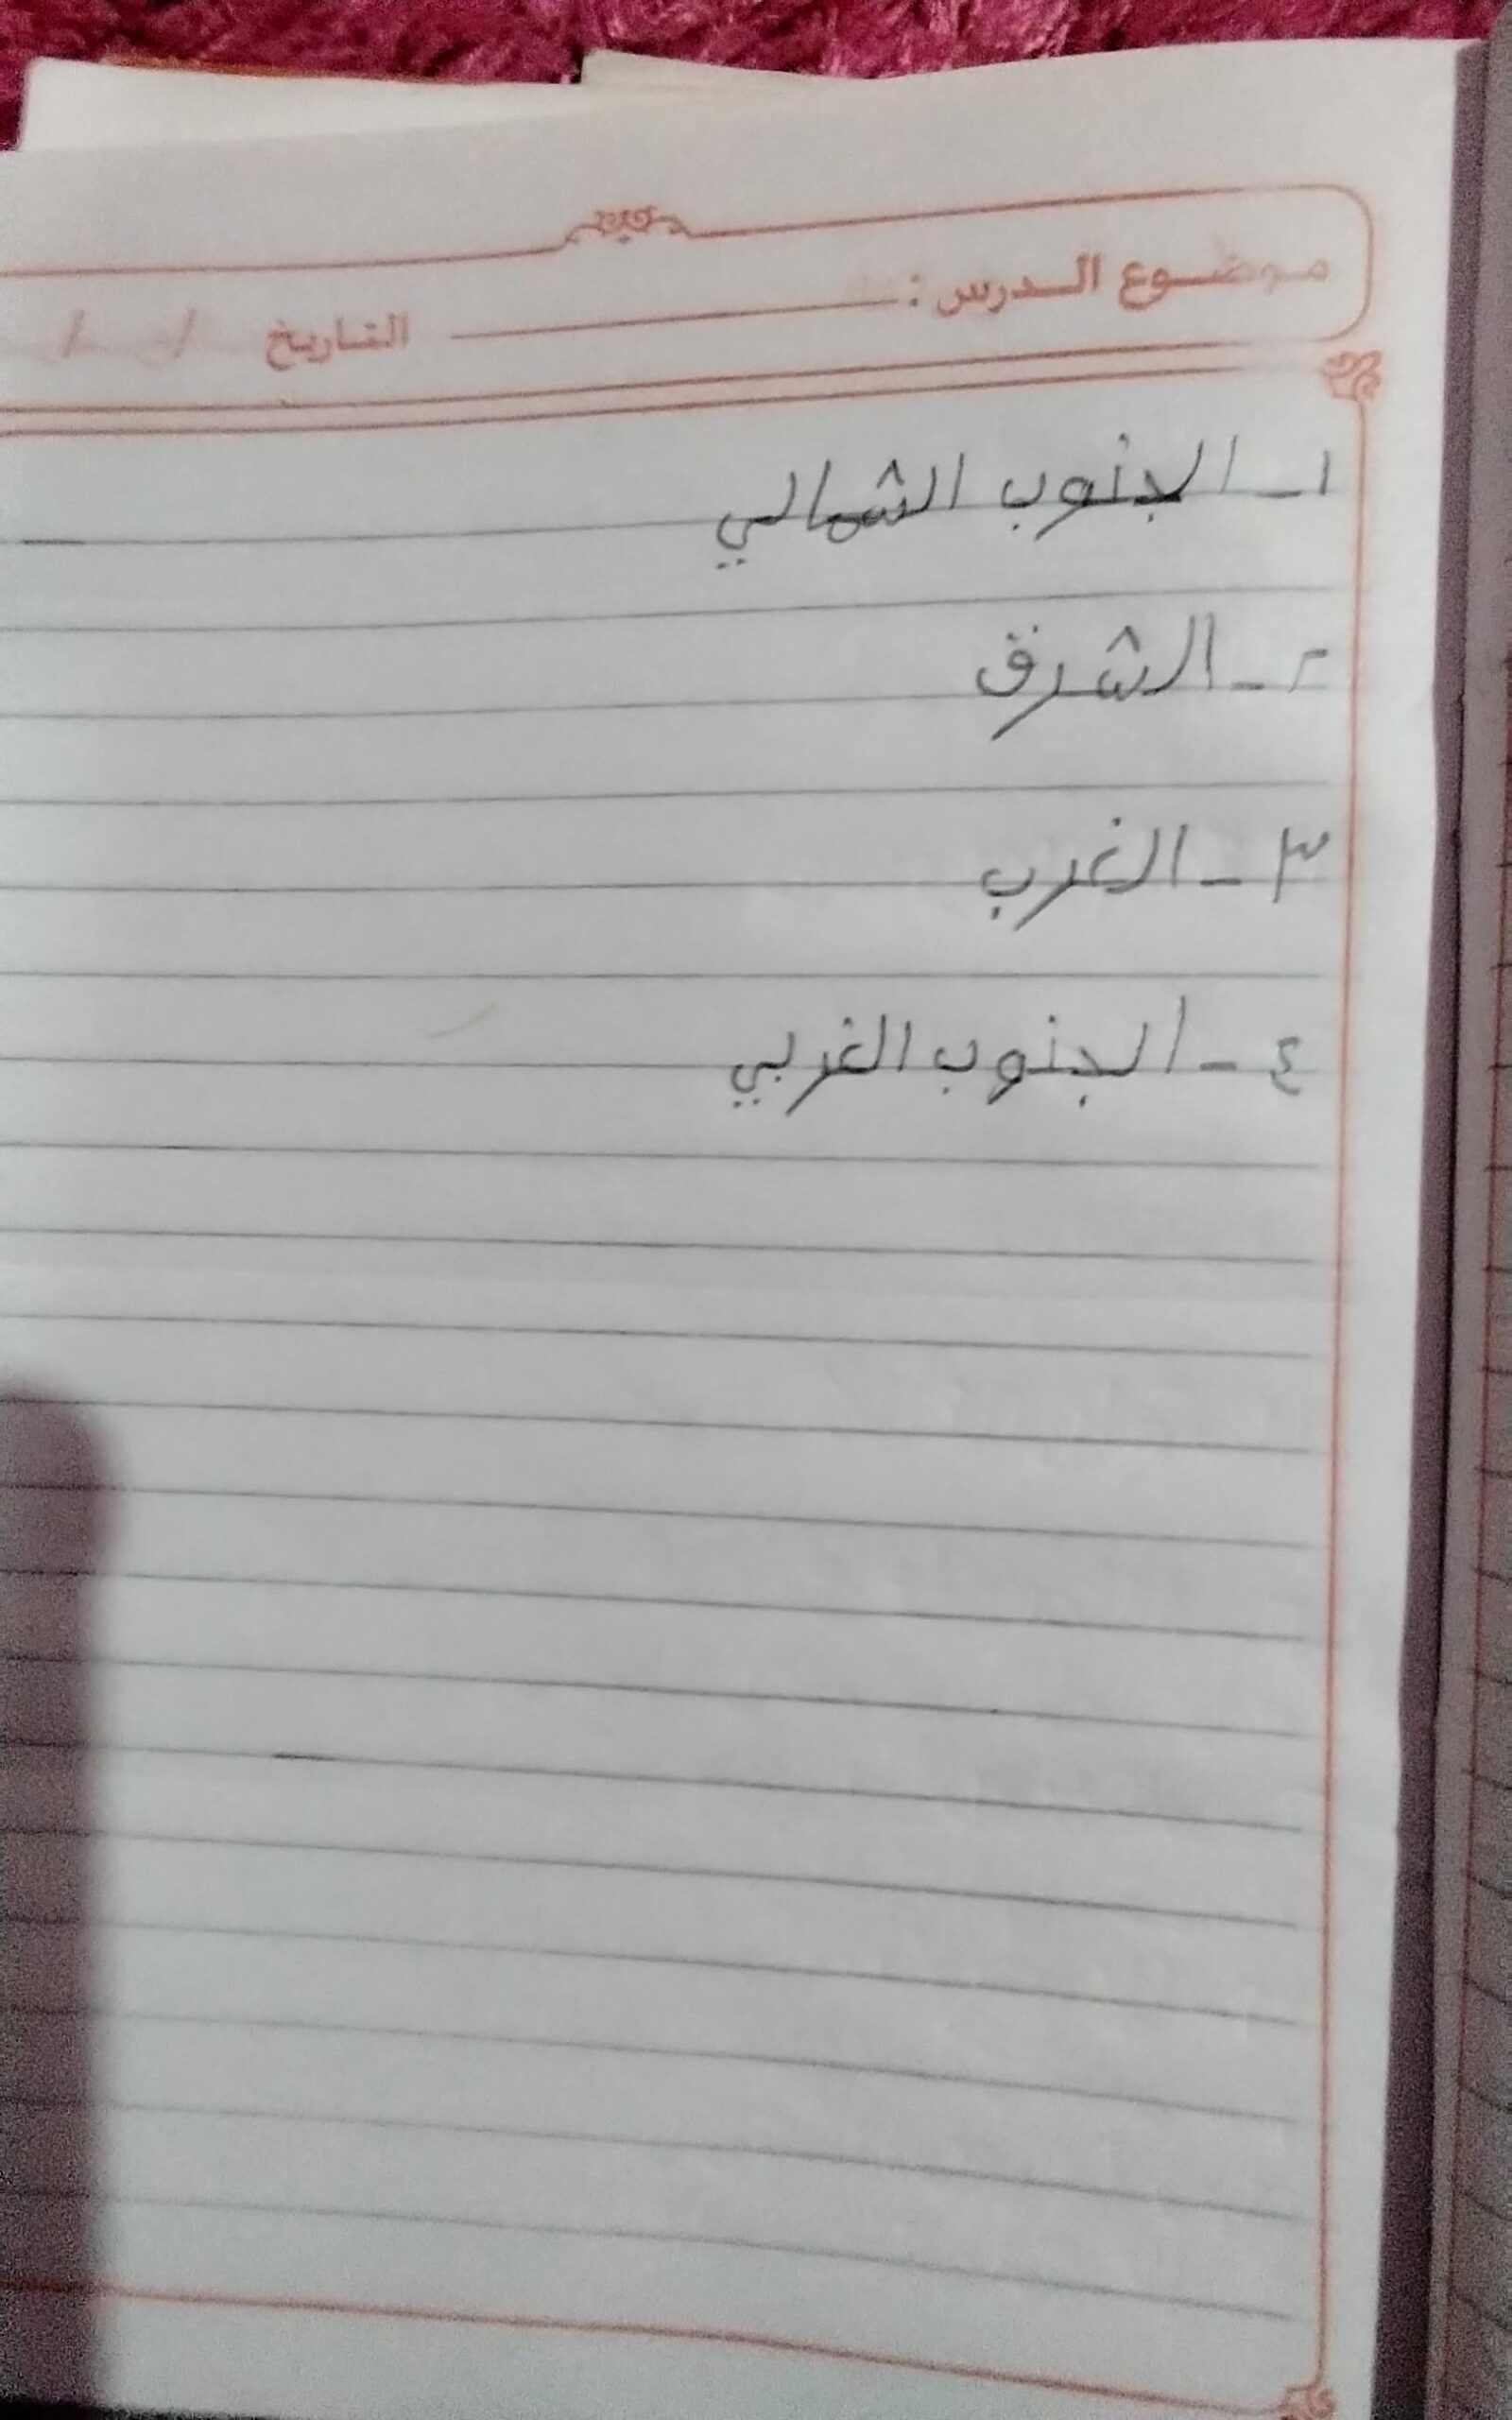 موضوع الدرس : التاريخ / /
١- الجنوب الشمالي
٢- الشرق
٣- الغرب
٤- الجنوب الغربي